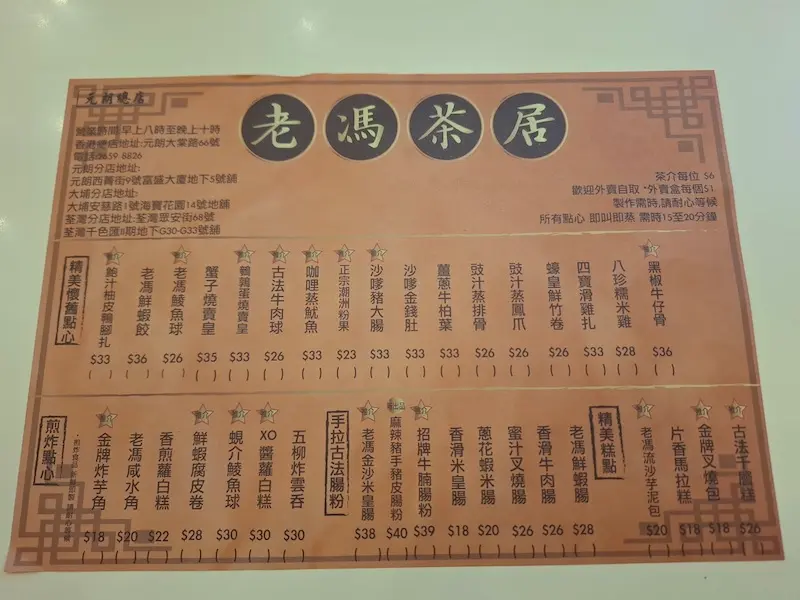 元朗總店
老馮茶居
營業時間:早上八時至晚上十時
香港總店地址:元朗大棠路66號
電話:2659 8826
元朗分店地址:
元朗西菁街9號富盛大廈地下5號舖
大埔分店地址:
大埔安慈路1號海寶花園14號地舖
荃灣分店地址:荃灣眾安街68號
荃灣千色匯II期地下G30-G33號舖
茶介每位 $6
歡迎外賣自取 *外賣盒每個$1.
製作需時,請耐心等候
所有點心 即叫即蒸 需時15至20分鐘
精美懷舊點心
鮑汁柚皮鴨腳扎 $33 ( )
老馮鮮蝦餃 $36 ( )
老馮鯪魚球 $26 ( )
蟹子燒賣皇 $35 ( )
鵪鶉蛋燒賣皇 $33 ( )
古法牛肉球 $26 ( )
咖哩蒸魷魚 $33 ( )
正宗潮洲粉果 $23 ( )
沙嗲豬大腸 $33 ( )
沙嗲金錢肚 $33 ( )
薑蔥牛柏葉 $33 ( )
豉汁蒸排骨 $26 ( )
豉汁蒸鳳爪 $26 ( )
蠔皇鮮竹卷 $26 ( )
四寶滑雞扎 $33 ( )
八珍糯米雞 $28 ( )
黑椒牛仔骨 $36 ( )
煎炸點心
金牌炸芋角 $18 ( )
老馮咸水角 $20 ( )
香煎蘿白糕 $22 ( )
鮮蝦腐皮卷 $28 ( )
蜆介鯪魚球 $30 ( )
XO醬蘿白糕 $30 ( )
五柳炸雲吞 $30 ( )
手拉古法腸粉
老馮金沙米皇腸 $38 ( )
麻辣豬手豬皮腸粉 $40 ( )
招牌牛腩腸粉 $39 ( )
香滑米皇腸 $18 ( )
蔥花蝦米腸 $20 ( )
蜜汁叉燒腸 $26 ( )
香滑牛肉腸 $26 ( )
老馮鮮蝦腸 $28 ( )
精美糕點
老馮流沙芋泥包 $20 ( )
片香馬拉糕 $18 ( )
金牌叉燒包 $18 ( )
古法千層糕 $26 ( )